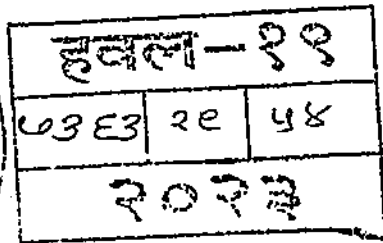 हवल-११
७३६३ २९ ५४
२०२३